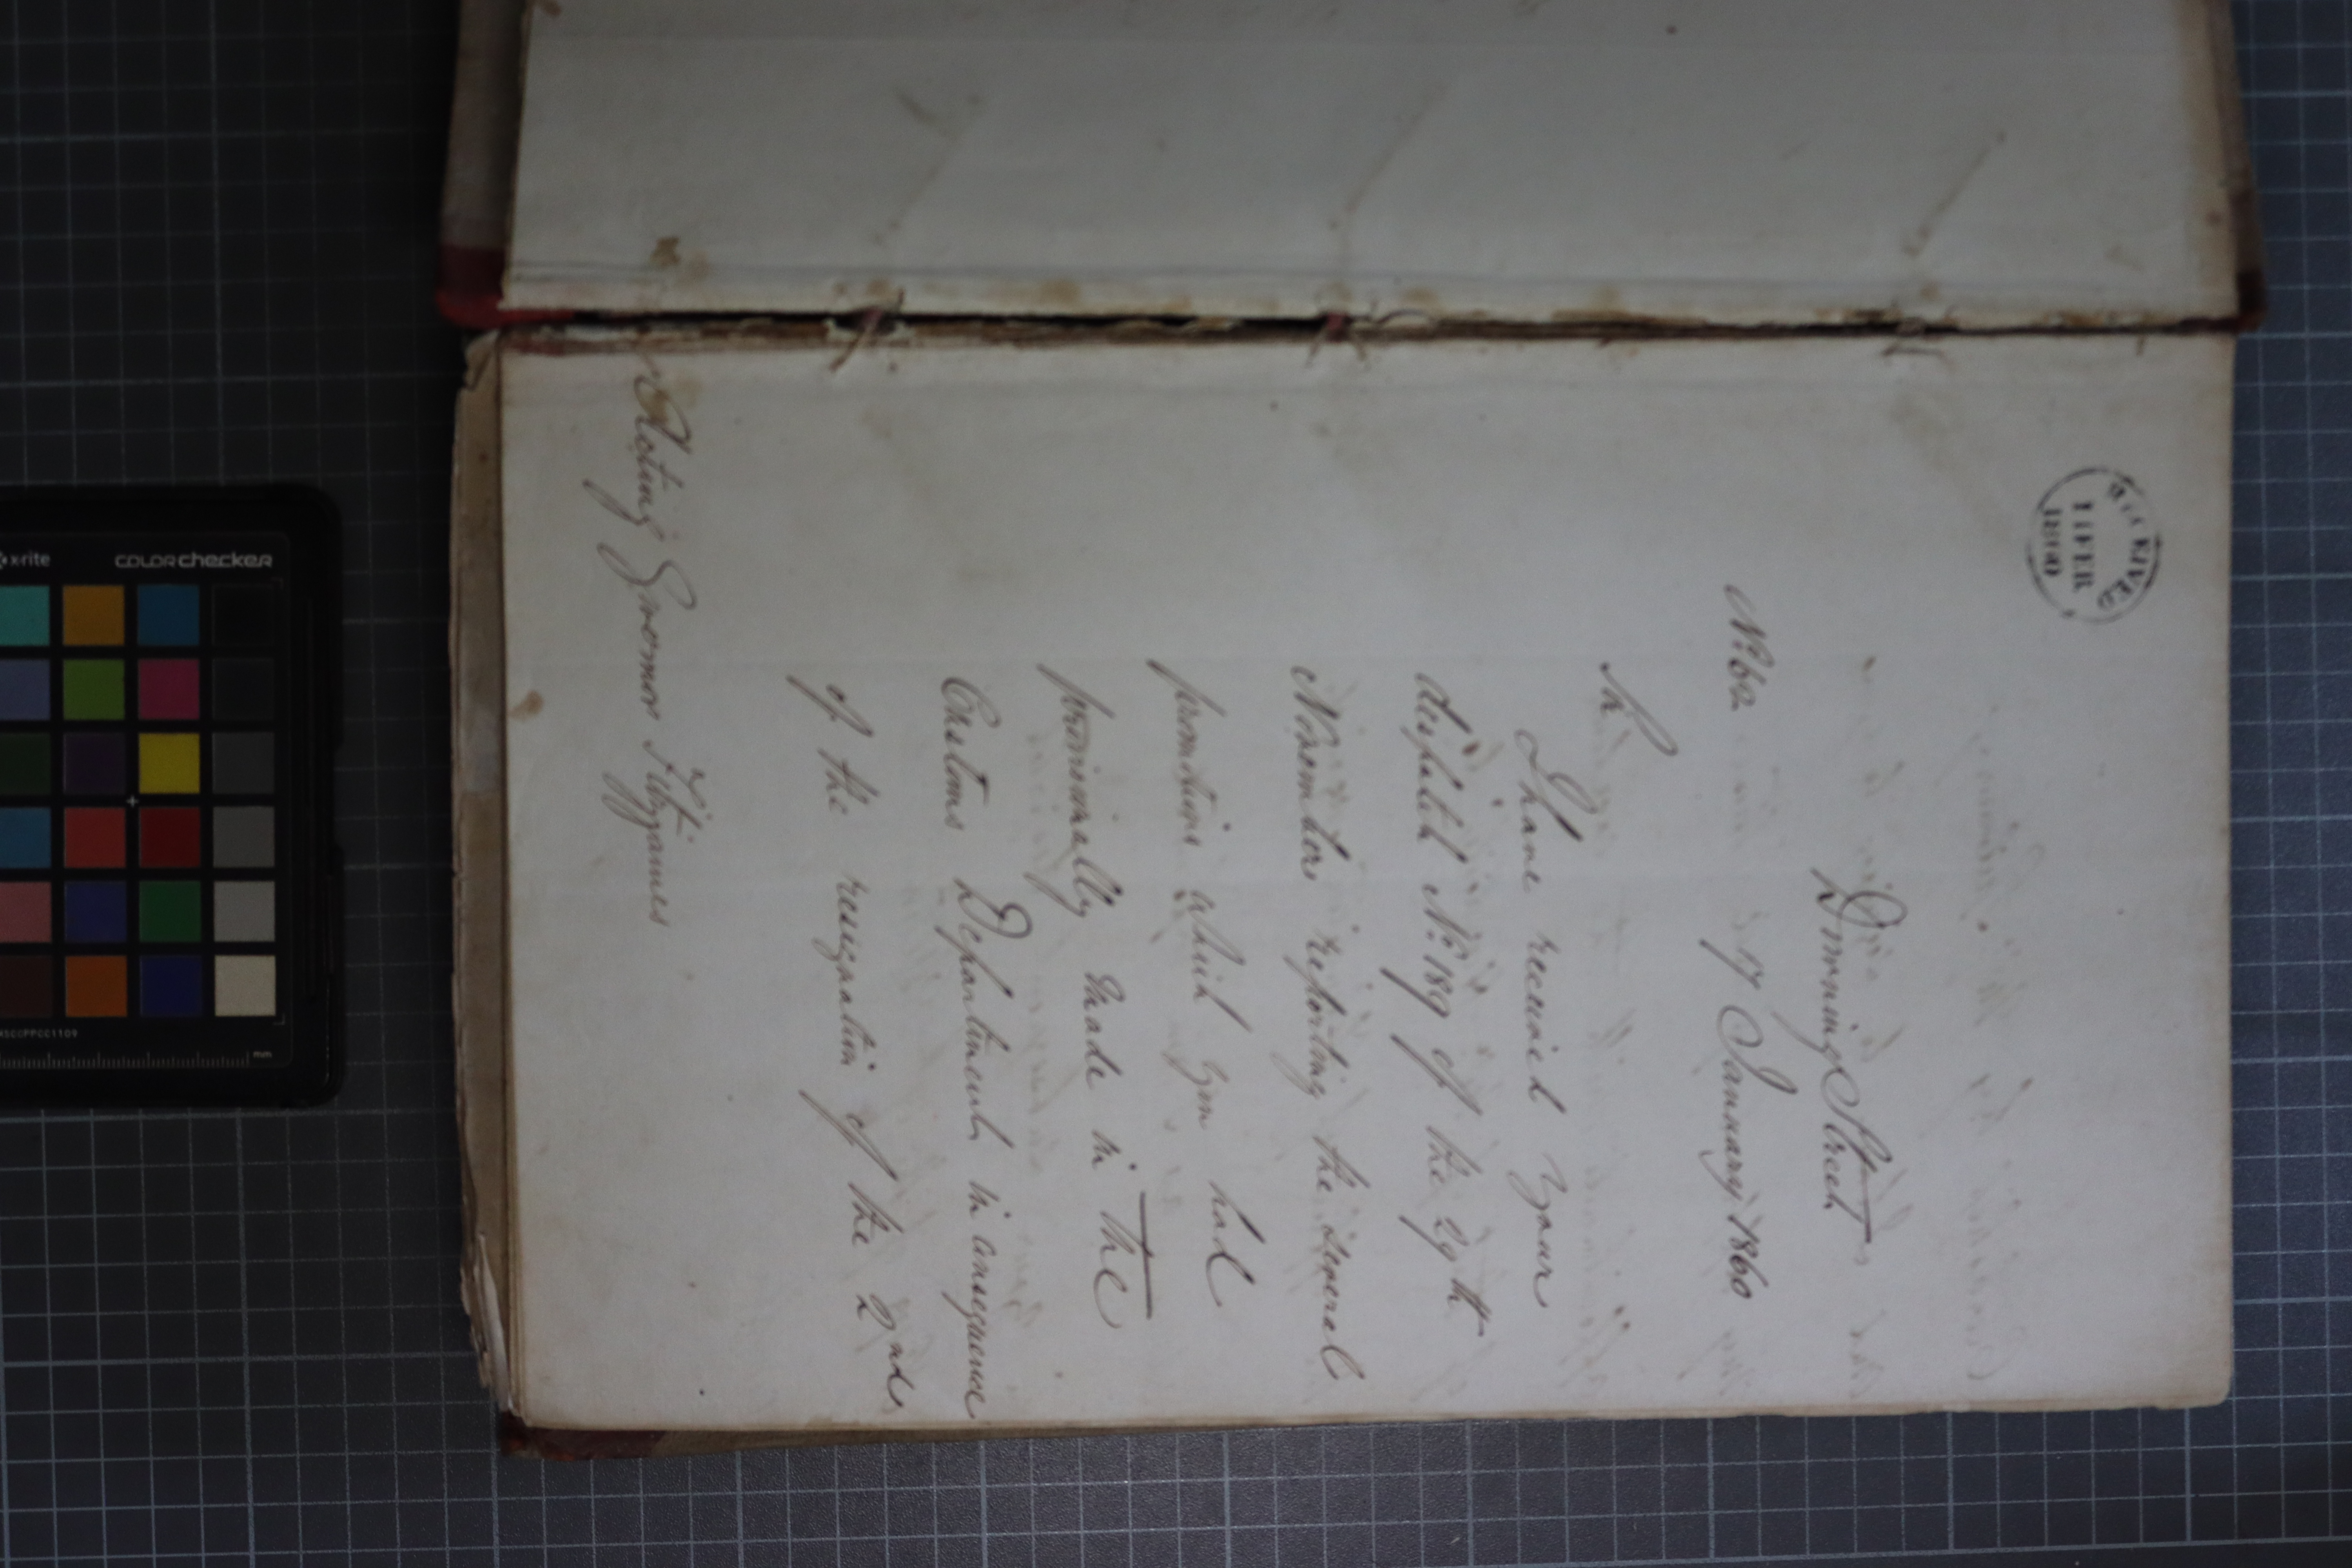 RECEIVED
1 FEB
1860
Downing Street
No. 62
17 January 1860
Sir
I have received your
despatch No. 189 of the 29th
November reporting the several
promotions which you had
provisionally made in the
Customs Department in consequence
of the resignation of the 2nd
Acting Governor Fitzjames
x-rite
colorchecker
mm